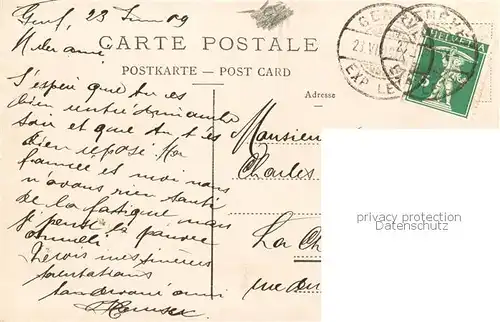 Genf, 23 Juin 09
CARTE POSTALE
POSTKARTE — POST CARD
Adresse
HELVETIA
5
GENÈVE
EXP. LE
Mon cher ami
J'espère que tu es
bien rentré dimanche
soir et que tu t'es
bien reposé. Ma
fiancée et moi nous
n'avons rien senti
de la fatigue, mais
je pense la pauvre
Reçois mes sincères
salutations
Ton dévoué ami
Monsieur
Charles
La Ch
rue du
privacy protection
Datenschutz